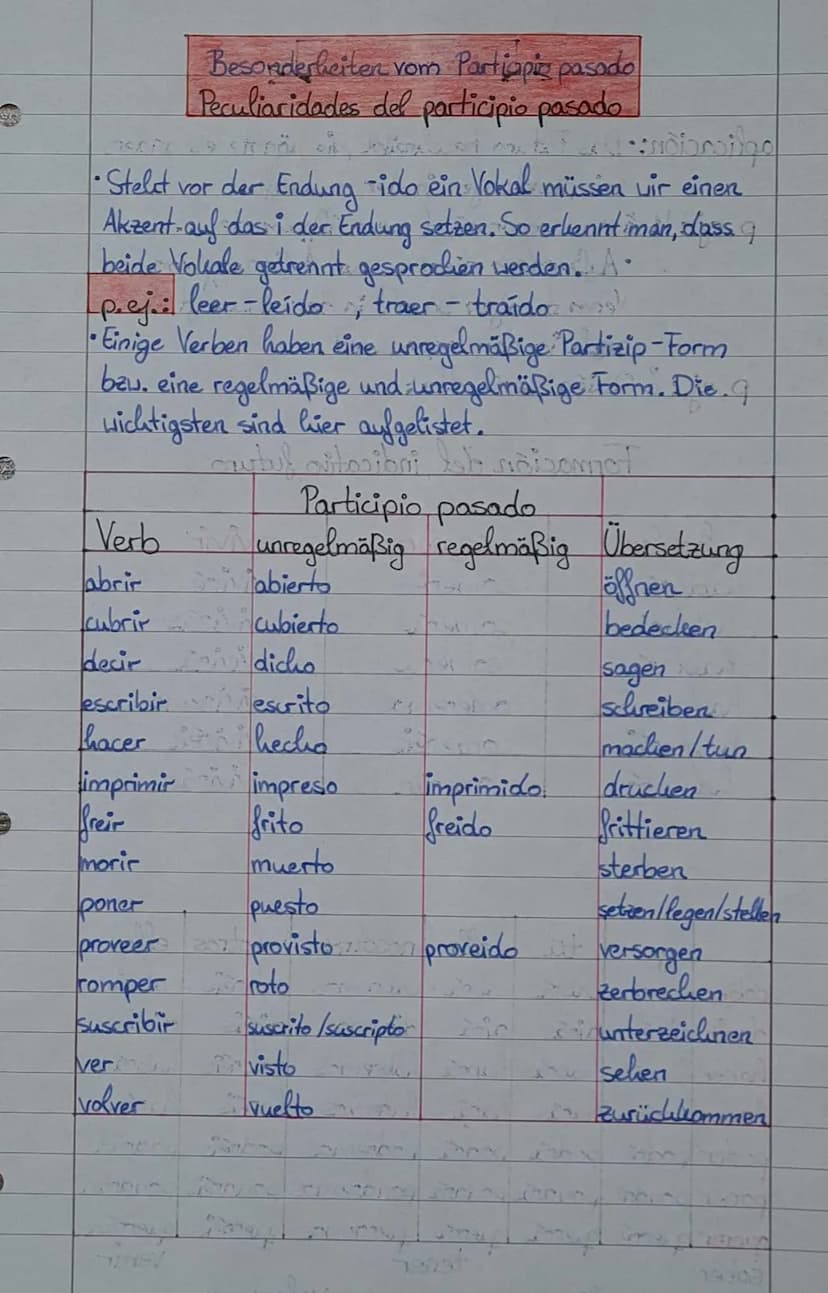 Besonderheiten vom Partizpio pasado
Peculiaridades del participio pasado
• Steht vor der Endung -ido ein Vokal müssen wir einen
Akzent auf das i der Endung setzen. So erkennt man, dass
beide Vokale getrennt gesprochen werden.
p.ej.: leer - leído ; traer - traído
• Einige Verben haben eine unregelmäßige Partizip-Form
bzw. eine regelmäßige und unregelmäßige Form. Die
wichtigsten sind hier aufgelistet.
Participio pasado
Verb unregelmäßig regelmäßig Übersetzung
abrir abierto öffnen
cubrir cubierto bedecken
decir dicho sagen
escribir escrito schreiben
hacer hecho machen/tun
imprimir impreso imprimido drucken
freir frito freido frittieren
morir muerto sterben
poner puesto setzen/legen/stellen
proveer provisto proveido versorgen
romper roto zerbrechen
suscribir suscrito/suscripto unterzeichnen
ver visto sehen
volver vuelto zurückkommen